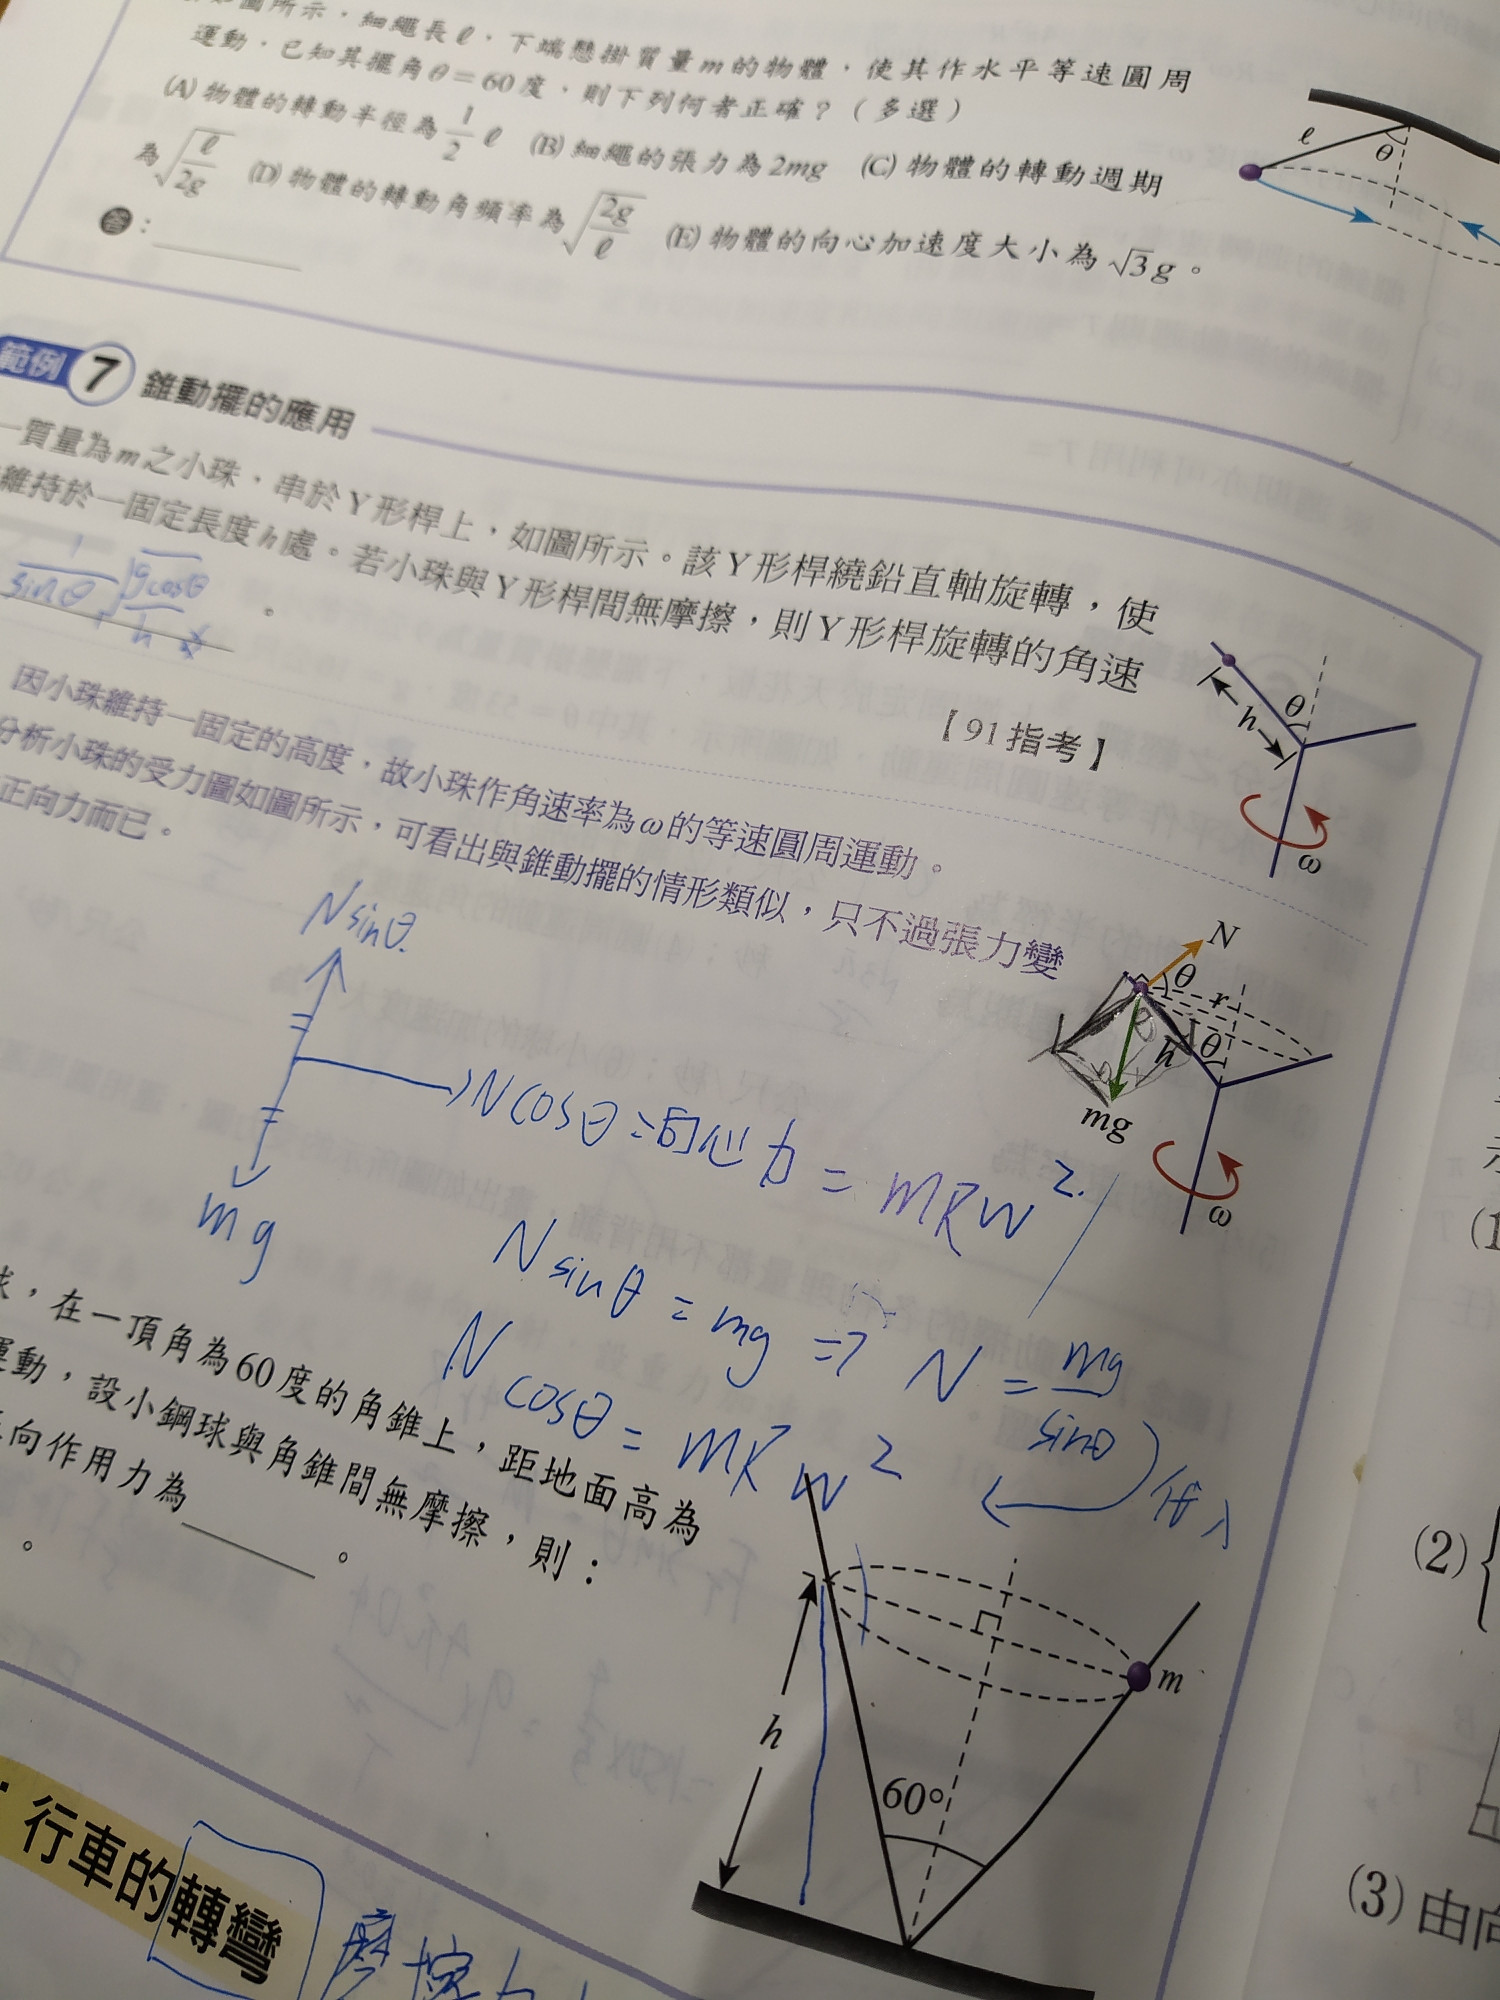 如圖所示，細繩長ℓ，下端懸掛質量m的物體，使其作水平等速圓周
運動，已知其擺角θ=60度，則下列何者正確？（多選）
(A)物體的轉動半徑為1/2 ℓ (B)細繩的張力為2mg (C)物體的轉動週期
為√(ℓ/2g) (D)物體的轉動角頻率為√(2g/ℓ) (E)物體的向心加速度大小為√3g。
答：
ℓ
θ
範例 7 錐動擺的應用
一質量為m之小珠，串於Y形桿上，如圖所示。該Y形桿繞鉛直軸旋轉，使
維持於一固定長度h處。若小珠與Y形桿間無摩擦，則Y形桿旋轉的角速
1/sinθ √(gcosθ/h) 。
【91指考】
θ
h
ω
因小珠維持一固定的高度，故小珠作角速率為ω的等速圓周運動。
分析小珠的受力圖如圖所示，可看出與錐動擺的情形類似，只不過張力變
正向力而已。
N
θ
r
θ
h
θ
mg
ω
Nsinθ
Ncosθ=向心力=mRW²
mg
Nsinθ=mg⇒N=mg/sinθ
Ncosθ=mRW²
代入
球，在一頂角為60度的角錐上，距地面高為
運動，設小鋼球與角錐間無摩擦，則：
向作用力為 。
。
h
m
60°
行車的轉彎
摩擦力
(1
(2)
(3)由向